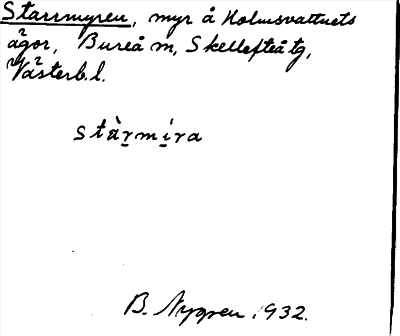 Starrmyren, myr å Holmsvattnets
ägor, Bureå m, Skellefteå tg,
Västerb. l.
stàr̲mí̲ra
B. Nygren 1932.